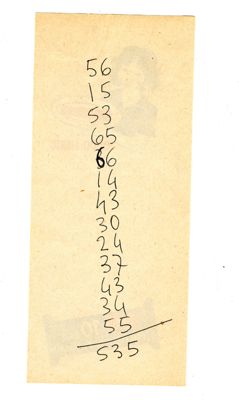 56
15
53
65
66
14
43
30
24
37
43
34
55
535